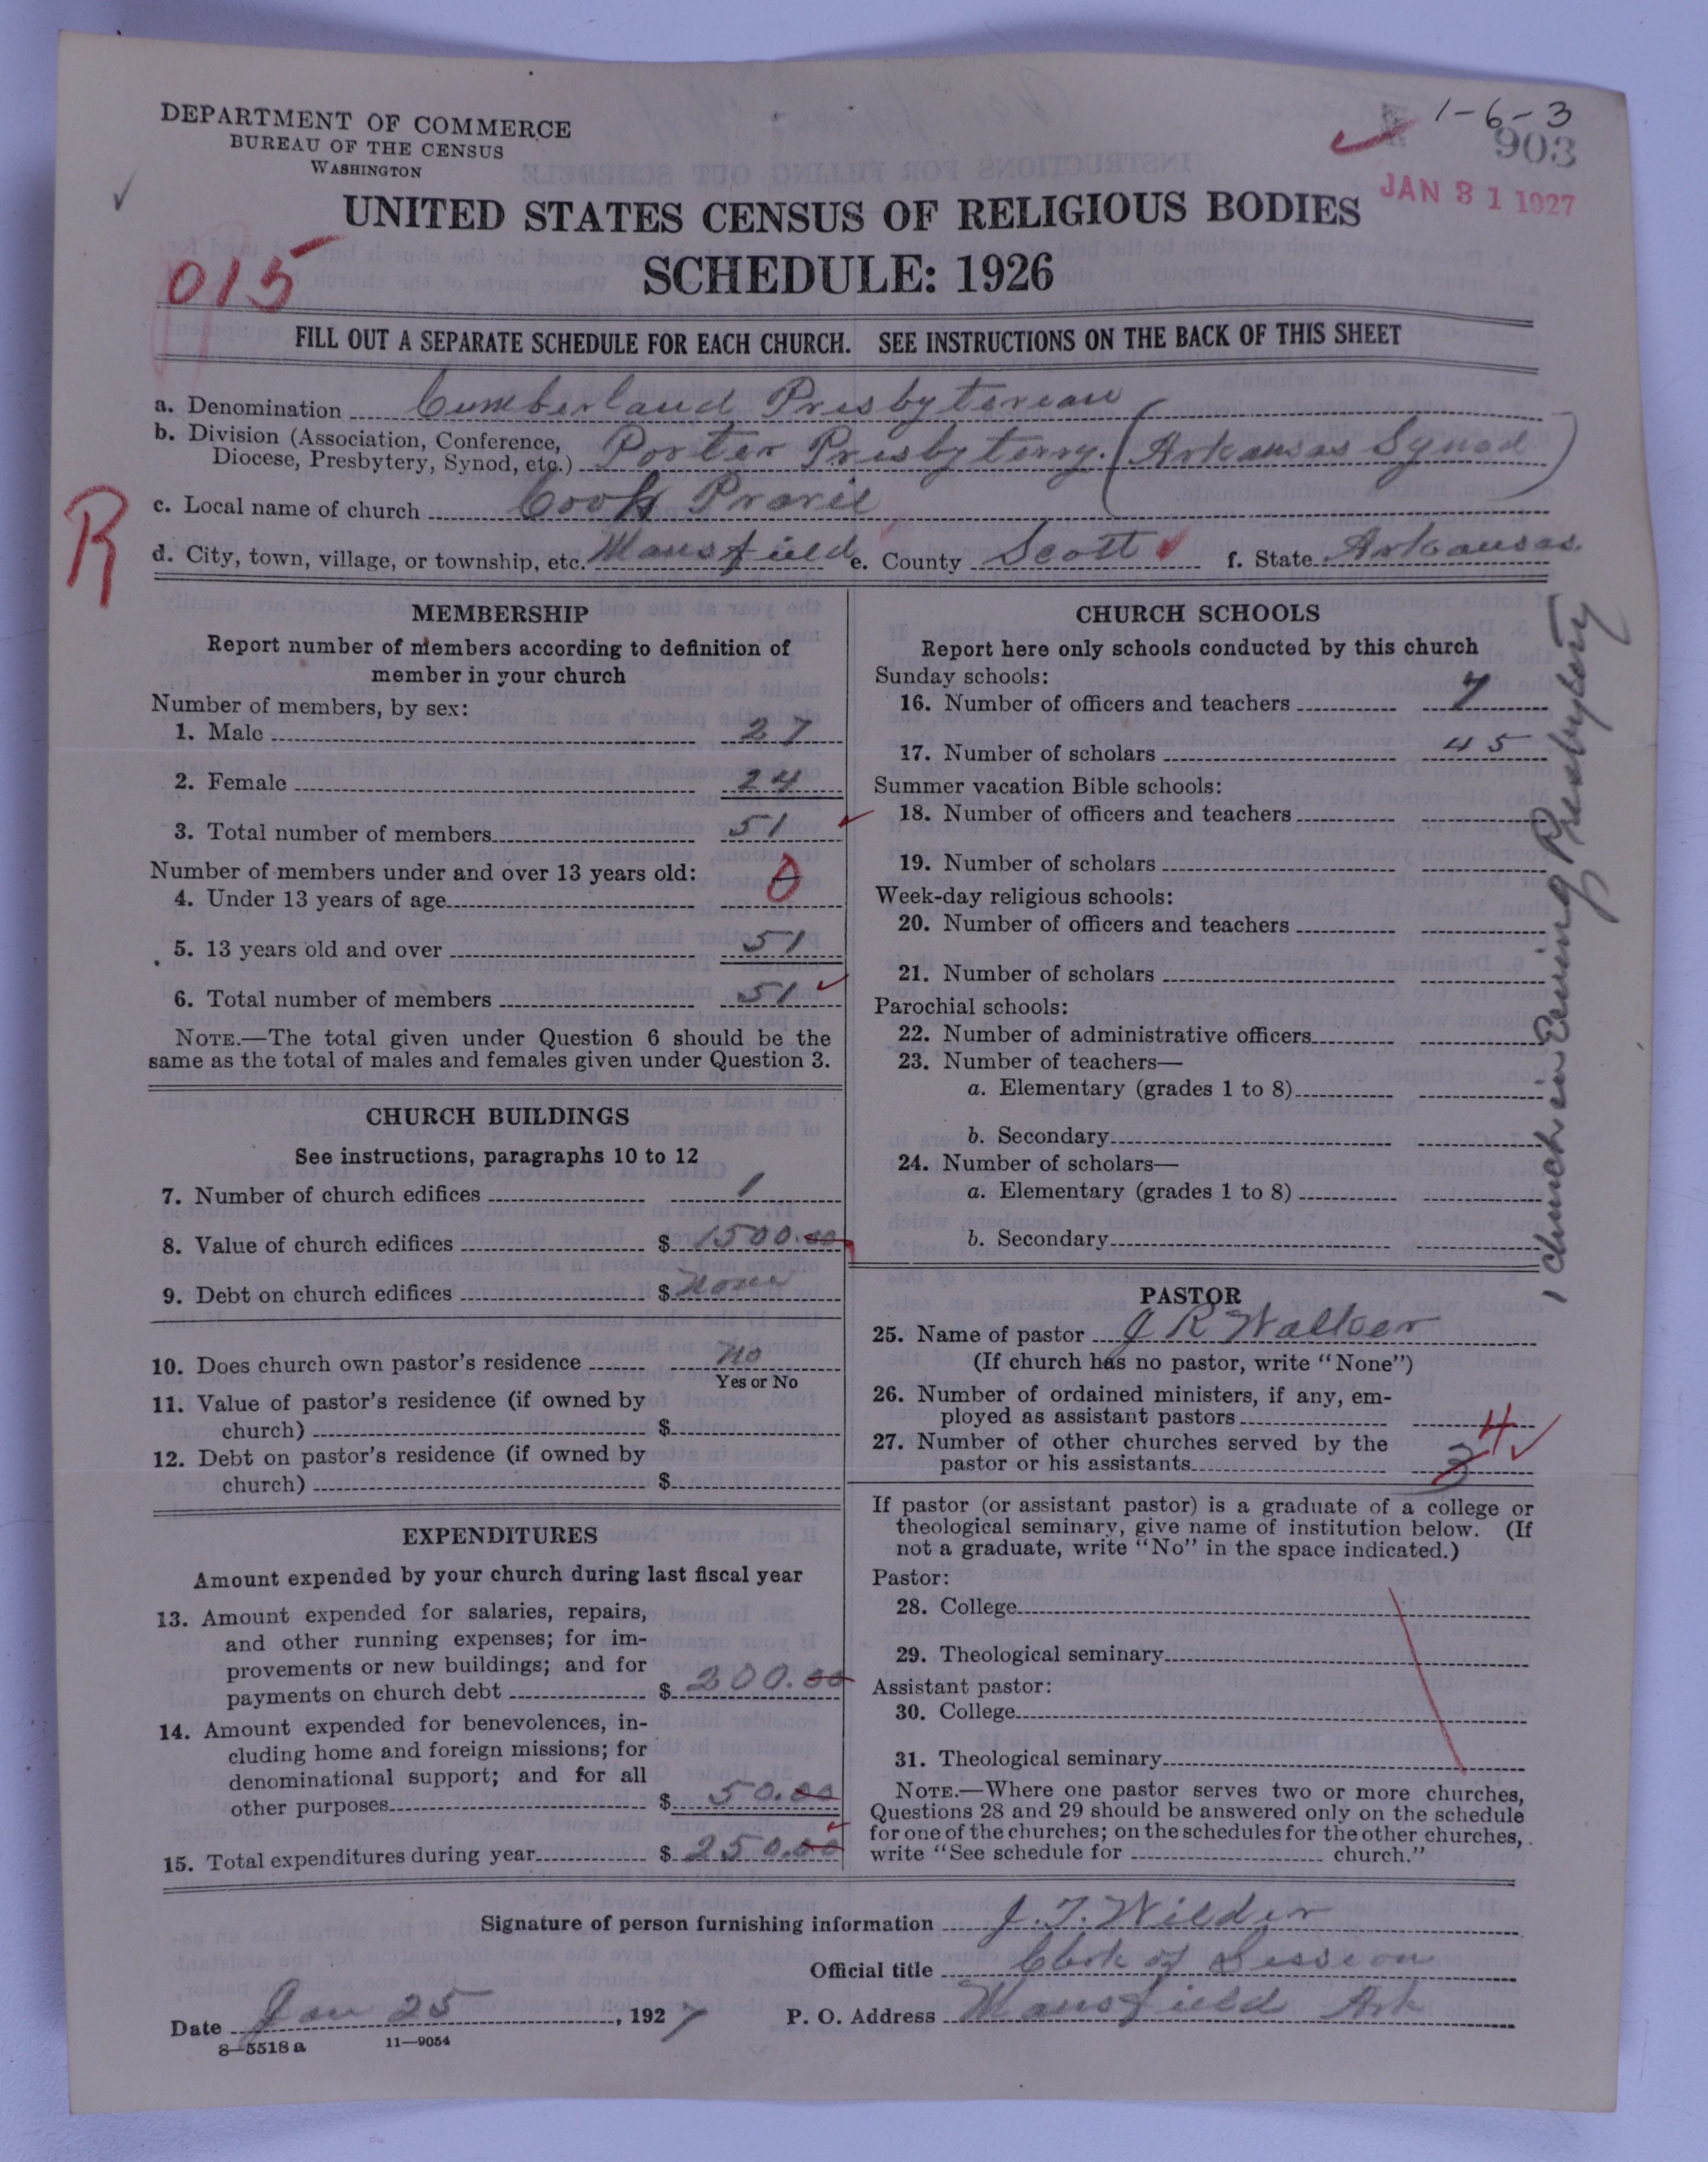 DEPARTMENT OF COMMERCE
BUREAU OF THE CENSUS
WASHINGTON
1-6-3
903
JAN 31 1927
UNITED STATES CENSUS OF RELIGIOUS BODIES
SCHEDULE: 1926
015
FILL OUT A SEPARATE SCHEDULE FOR EACH CHURCH. SEE INSTRUCTIONS ON THE BACK OF THIS SHEET
a. Denomination Cumberland Presbyterean
b. Division (Association, Conference,
Diocese, Presbytery, Synod, etc.) Porter Presbytery. (Arkansas Synod)
R
c. Local name of church Cook Prarie
d. City, town, village, or township, etc. Mansfield e. County Scott f. State Arkansas.
MEMBERSHIP
Report number of members according to definition of
member in your church
Number of members, by sex:
1. Male 27
2. Female 24
3. Total number of members 51
Number of members under and over 13 years old:
4. Under 13 years of age 0
5. 13 years old and over 51
6. Total number of members 51
NOTE.—The total given under Question 6 should be the
same as the total of males and females given under Question 3.
CHURCH BUILDINGS
See instructions, paragraphs 10 to 12
7. Number of church edifices 1
8. Value of church edifices $ 1500.00
9. Debt on church edifices $ None
10. Does church own pastor's residence no
Yes or No
11. Value of pastor's residence (if owned by
church) $
12. Debt on pastor's residence (if owned by
church) $
EXPENDITURES
Amount expended by your church during last fiscal year
13. Amount expended for salaries, repairs,
and other running expenses; for im-
provements or new buildings; and for
payments on church debt $ 200.00
14. Amount expended for benevolences, in-
cluding home and foreign missions; for
denominational support; and for all
other purposes $ 50.00
15. Total expenditures during year $ 250.00
CHURCH SCHOOLS
Report here only schools conducted by this church
Sunday schools:
16. Number of officers and teachers 7
17. Number of scholars 45
Summer vacation Bible schools:
18. Number of officers and teachers
19. Number of scholars
Week-day religious schools:
20. Number of officers and teachers
21. Number of scholars
Parochial schools:
22. Number of administrative officers
23. Number of teachers—
a. Elementary (grades 1 to 8)
b. Secondary
24. Number of scholars—
a. Elementary (grades 1 to 8)
b. Secondary
church in Ewing Presbytery
PASTOR
25. Name of pastor J R Walker
(If church has no pastor, write "None")
26. Number of ordained ministers, if any, em-
ployed as assistant pastors
27. Number of other churches served by the
pastor or his assistants 3 4
If pastor (or assistant pastor) is a graduate of a college or
theological seminary, give name of institution below. (If
not a graduate, write "No" in the space indicated.)
Pastor:
28. College
29. Theological seminary
Assistant pastor:
30. College
31. Theological seminary
NOTE.—Where one pastor serves two or more churches,
Questions 28 and 29 should be answered only on the schedule
for one of the churches; on the schedules for the other churches,
write "See schedule for church."
Signature of person furnishing information J. T. Wilder
Official title Clerk of Session
Date Jan 25, 1927 P. O. Address Mansfield Ark
8—5518 a 11—9054